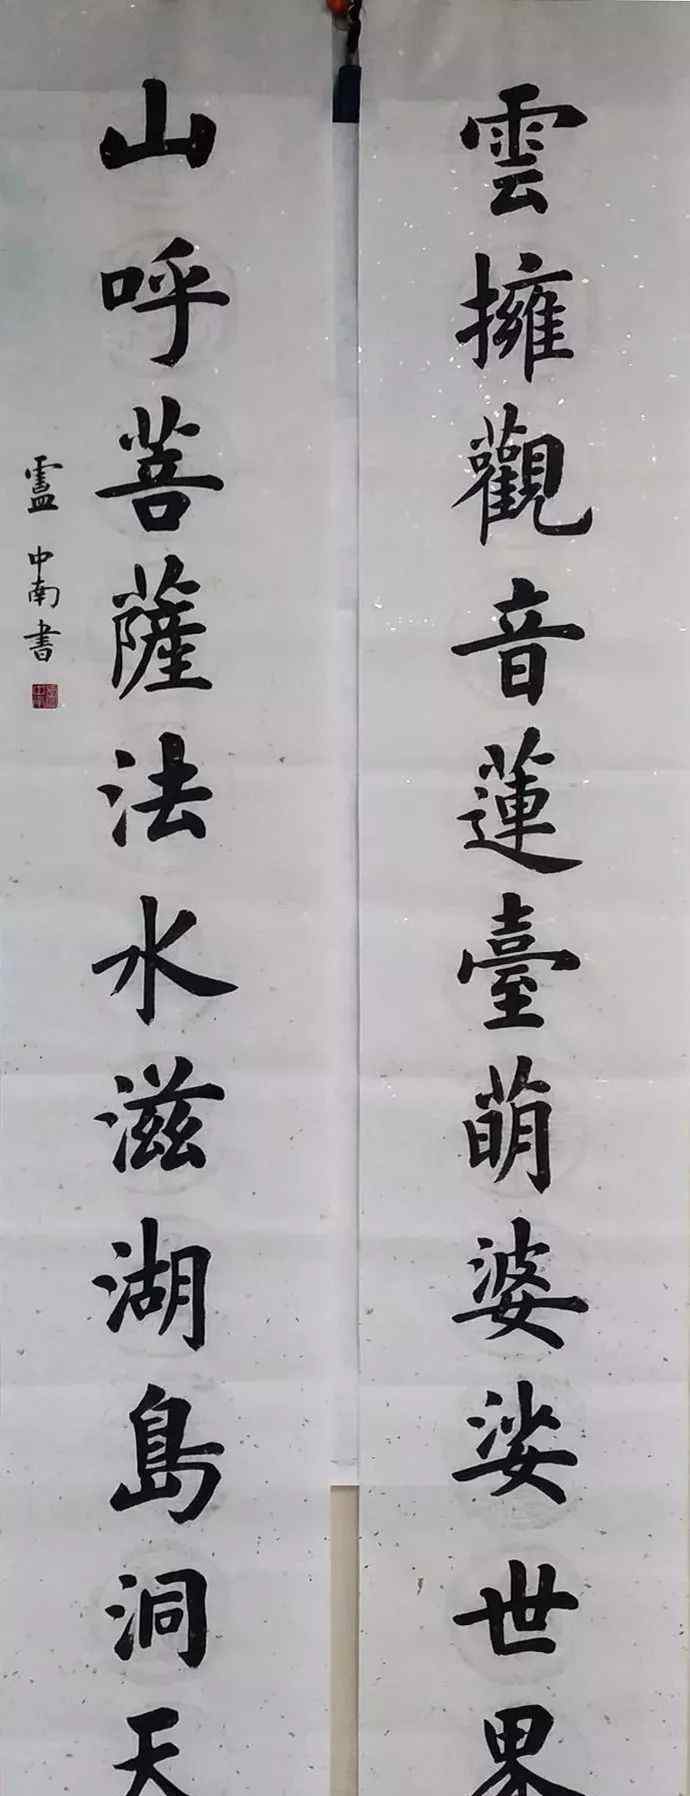 雲擁觀音蓮臺萌婆娑世界
山呼菩薩法水滋湖島洞天
盧中南書